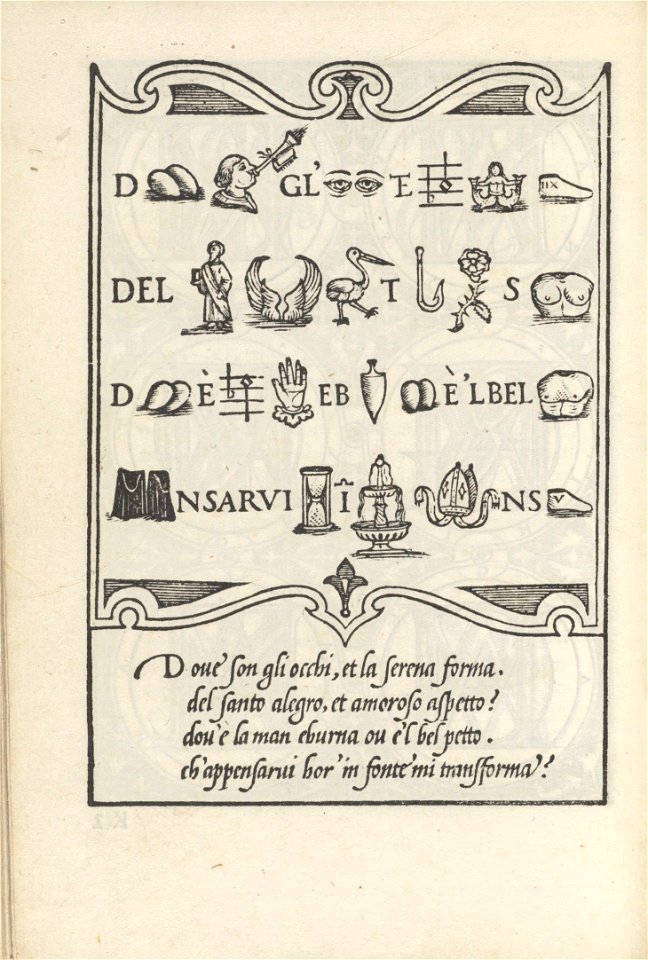 D GL' E IIX
DEL T S
D È EB È'LBEL
NSARVI I NS V
Doue son gli occhi, et la serena forma.
del santo alegro, et amoroso aspetto?
dou'è la man eburna ou è'l bel petto.
ch'appensarui hor' in fonte mi transforma?